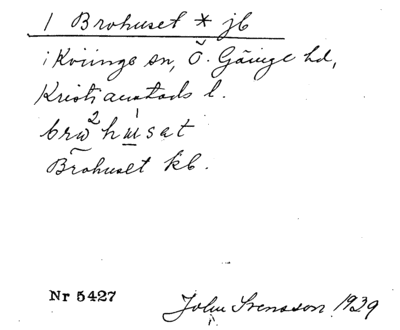 1 Brohuset * jb
i Kviinge sn, Ö. Göinge hd,
Kristianstads l.
brω²hɯsat
Brohuset kb.
Nr 5427
John Svensson 1929